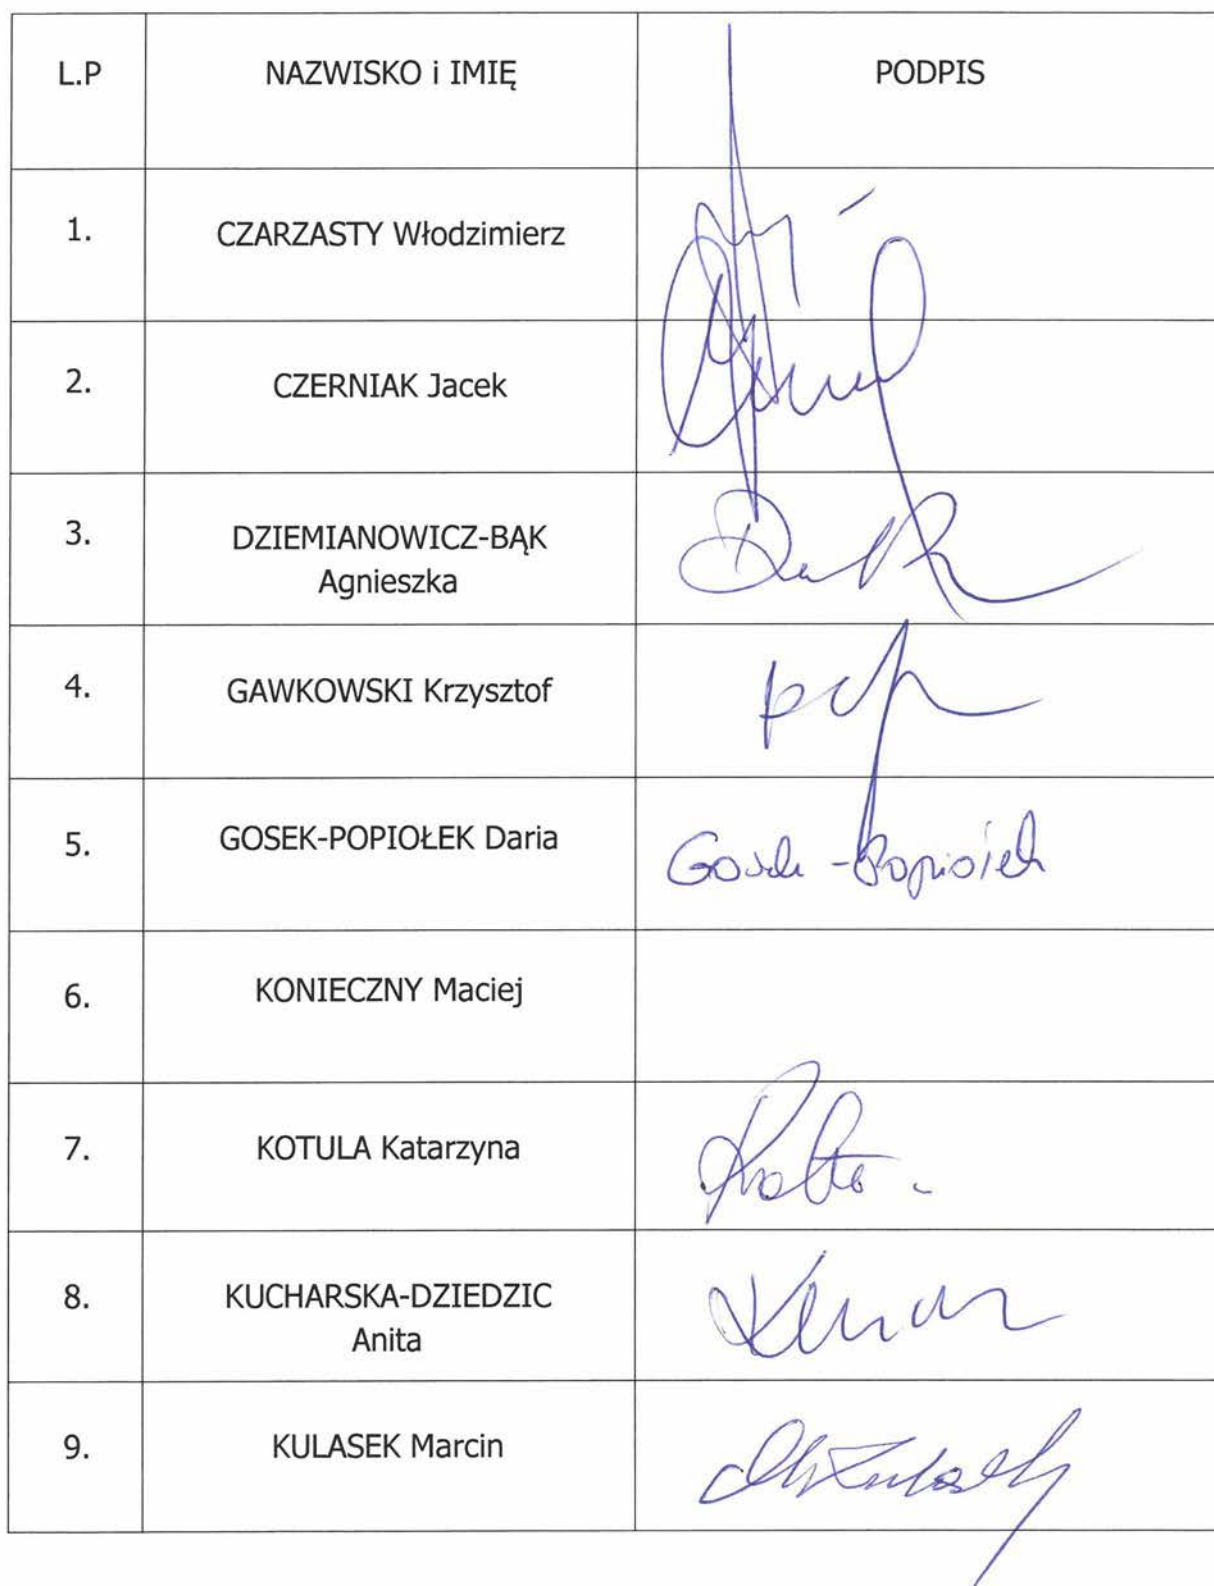 L.P NAZWISKO i IMIĘ PODPIS
1. CZARZASTY Włodzimierz
2. CZERNIAK Jacek
3. DZIEMIANOWICZ-BĄK
Agnieszka
4. GAWKOWSKI Krzysztof
5. GOSEK-POPIOŁEK Daria Gosek-Popiołek
6. KONIECZNY Maciej
7. KOTULA Katarzyna
8. KUCHARSKA-DZIEDZIC
Anita
9. KULASEK Marcin